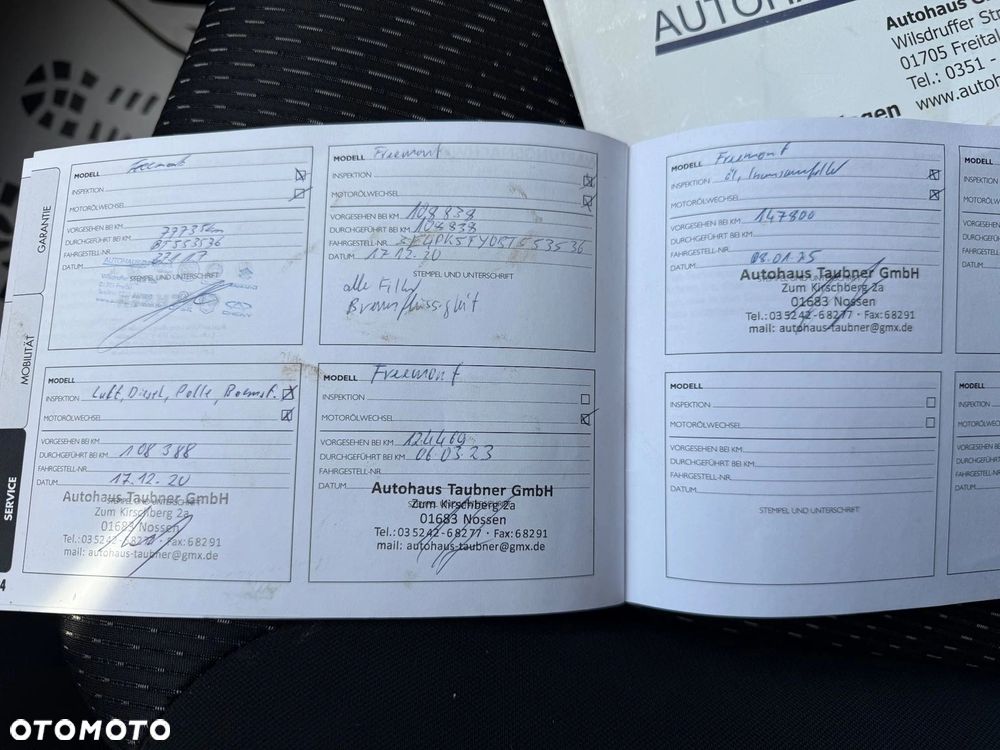 AUTOHA
Autohaus G
Wilsdruffer Str
01705 Freital
Tel.: 0351 -
www.autoh
GARANTIE
MOBILITÄT
SERVICE
4
MODELL
INSPEKTION
MOTORÖLWECHSEL
VORGESEHEN BEI KM
DURCHGEFÜHRT BEI KM
FAHRGESTELL-NR. BT553536
DATUM
STEMPEL UND UNTERSCHRIFT
MODELL Freemont
INSPEKTION
MOTORÖLWECHSEL
VORGESEHEN BEI KM 108 838
DURCHGEFÜHRT BEI KM 108 838
FAHRGESTELL-NR.
DATUM 17.12.20
STEMPEL UND UNTERSCHRIFT
alle Filter
Bremsflüssigkeit
MODELL Freemont
INSPEKTION Öl, Innenraumfilter
MOTORÖLWECHSEL
VORGESEHEN BEI KM 147800
DURCHGEFÜHRT BEI KM
FAHRGESTELL-NR.
DATUM 08.01.25
Autohaus Taubner GmbH
Zum Kirschberg 2a
01683 Nossen
Tel.: 0 35242 - 6 82 77 · Fax: 6 82 91
mail: autohaus-taubner@gmx.de
MODELL
MODELL
INSPEKTION Luft, Diesel, Polle, Bremsf.
MOTORÖLWECHSEL
VORGESEHEN BEI KM
DURCHGEFÜHRT BEI KM 108 388
FAHRGESTELL-NR.
DATUM 17.12.20
Autohaus Taubner GmbH
Zum Kirschberg 2a
01683 Nossen
Tel.: 0 35242 - 6 82 77 · Fax: 6 82 91
mail: autohaus-taubner@gmx.de
MODELL Freemont
INSPEKTION
MOTORÖLWECHSEL
VORGESEHEN BEI KM 124469
DURCHGEFÜHRT BEI KM 06.03.23
FAHRGESTELL-NR.
DATUM
Autohaus Taubner GmbH
Zum Kirschberg 2a
01683 Nossen
Tel.: 0 35242 - 6 82 77 · Fax: 6 82 91
mail: autohaus-taubner@gmx.de
MODELL
INSPEKTION
MOTORÖLWECHSEL
VORGESEHEN BEI KM
DURCHGEFÜHRT BEI KM
FAHRGESTELL-NR.
DATUM
STEMPEL UND UNTERSCHRIFT
MODELL
OTOMOTO